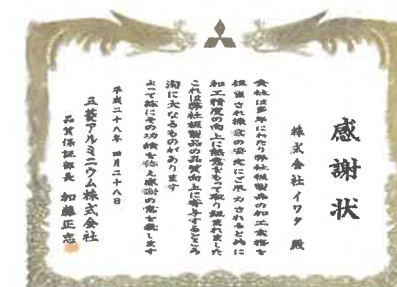 感謝状
株式会社イワタ 殿
貴社は多年にわたり弊社板製品の加工業務を
担当され操業の安定にご尽力されると共に
加工精度の向上に熱意をもって取り組まれました
これは弊社板製品の品質向上に寄与するところ
洵に大なるものがあります
よって茲にその功績を称え感謝の意を表します
平成二十八年 四月二十八日
三菱アルミニウム株式会社
品質保証部長 加藤正志